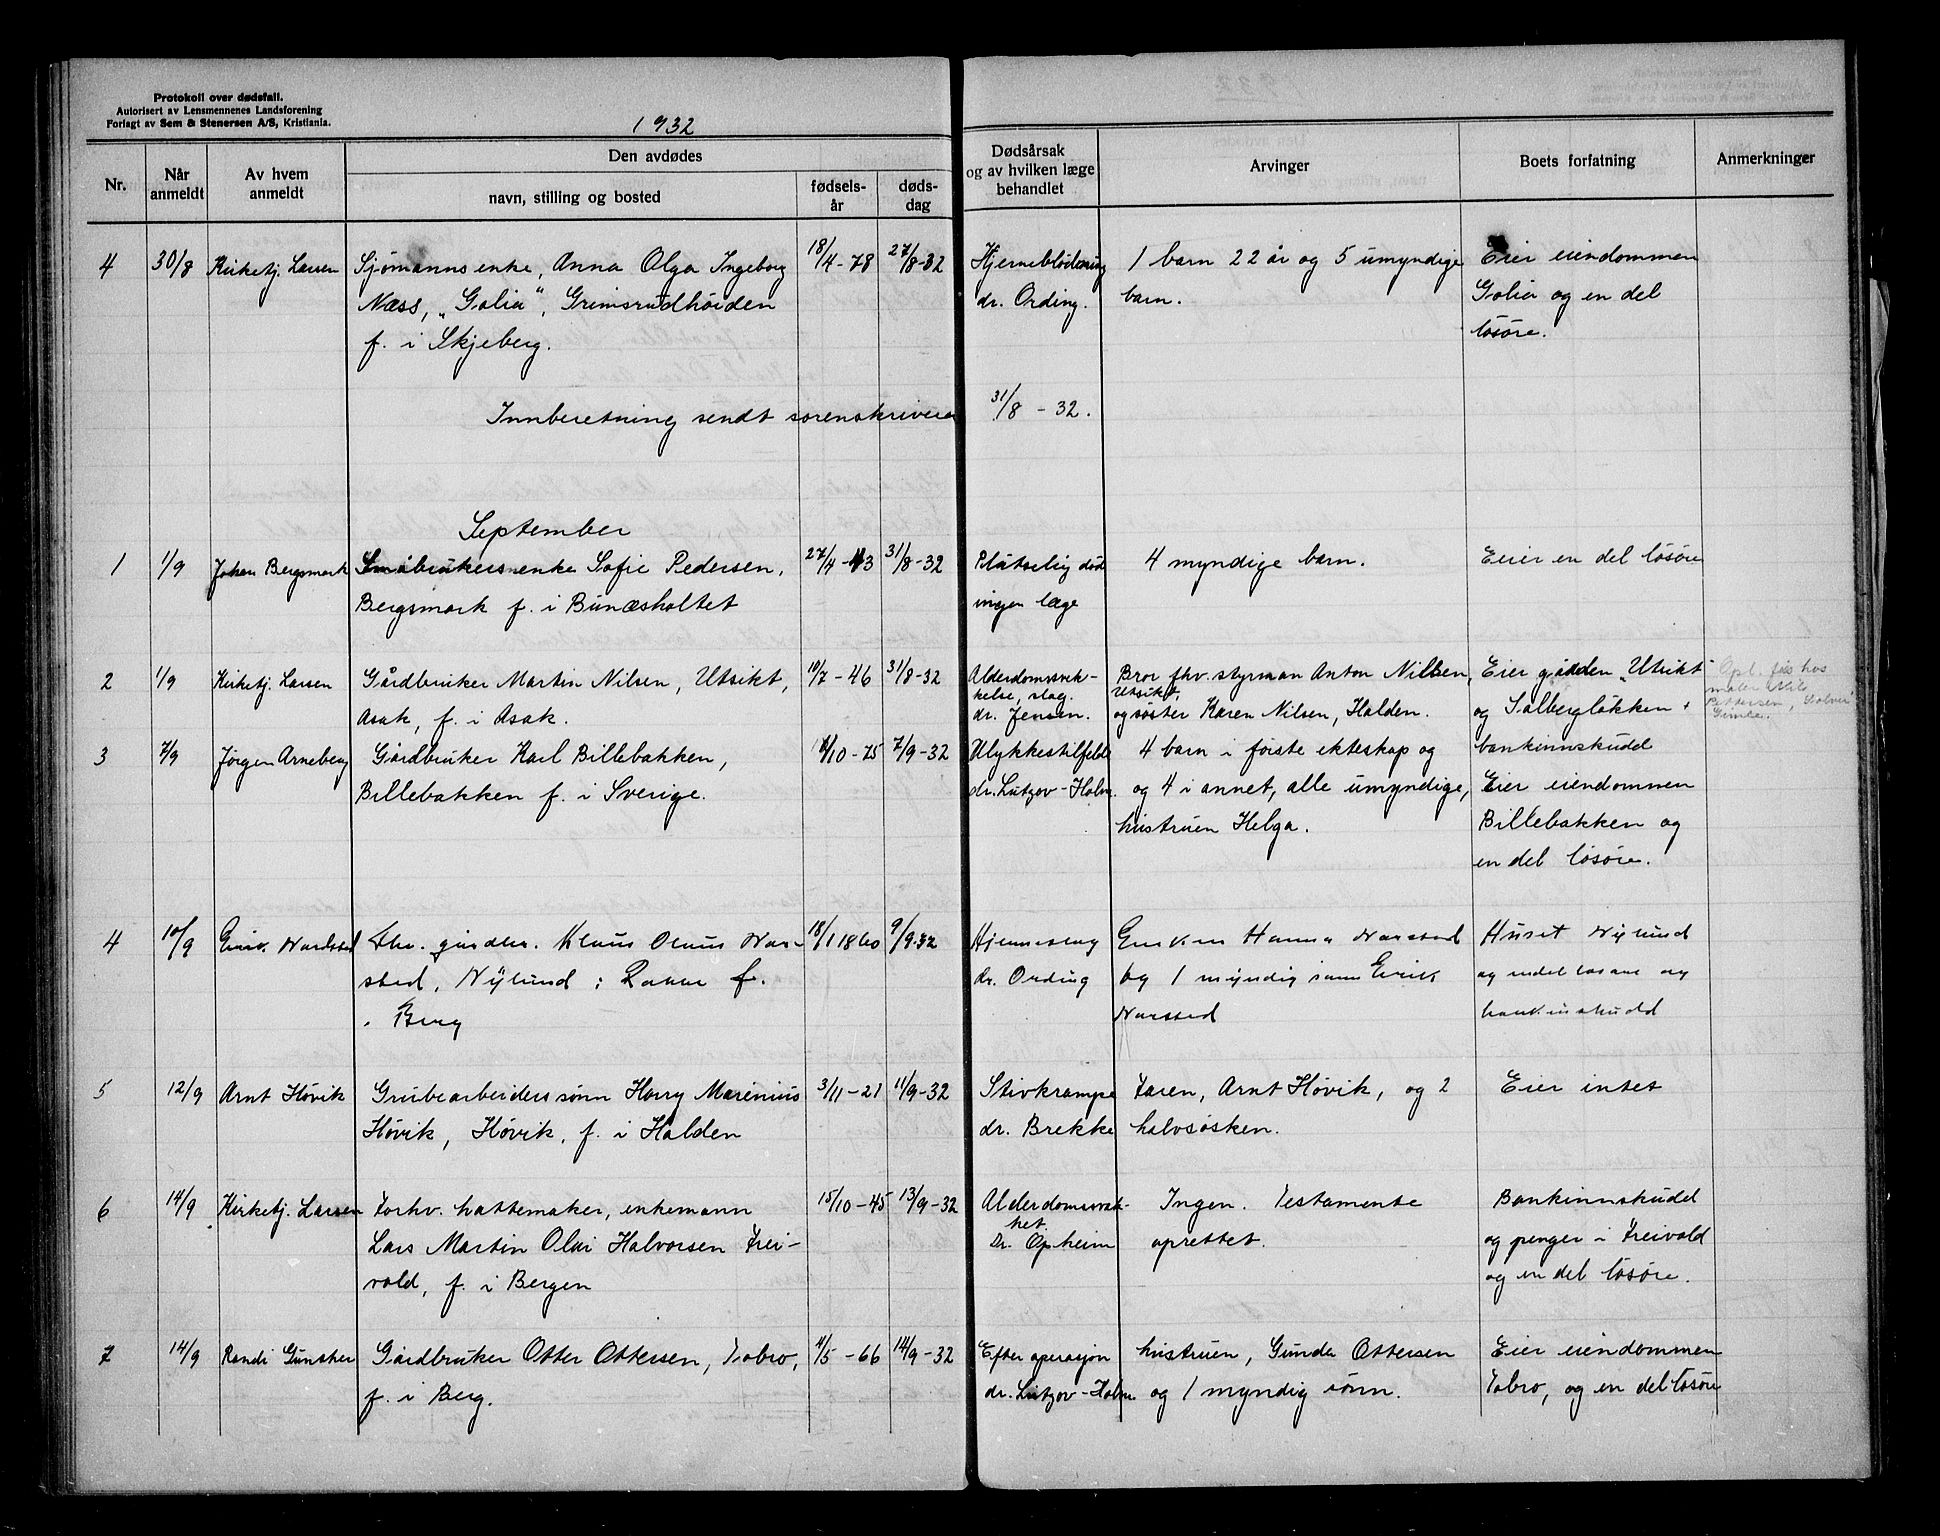 Protokoll over dødsfall.
Autorisert av Lensmennenes Landsforening
Forlagt av Sem & Stenersen A/S, Kristiania.
1932
Nr.
Når anmeldt
Av hvem anmeldt
Den avdødes
navn, stilling og bosted
fødsels-år
døds-dag
Dødsårsak
og av hvilken læge
behandlet
Arvinger
Boets forfatning
Anmerkninger
4 30/8 Kirketj. Larsen Sjømanns enke, Anna Olga Ingeborg 18/4-78 27/8-32 Hjerneblødning 1 barn 22 år og 5 umyndige Eier eiendommen
Næss, "Golia", Grimsrudhøiden dr. Ording. barn. Golia og en del
f. i Skjeberg. løsøre.
Innberetning sendt sorenskriveren 31/8 - 32.
September
1 1/9 Johan Bergsmark Småbrukersenke Sofie Pedersen, 27/4-43 31/8-32 Plutselig død 4 myndige barn. Eier en del løsøre
Bergsmark f. i Bunæsholtet ingen læge
2 1/9 Kirketj. Larsen Gårdbruker Martin Nilsen, Utsikt, 10/7-46 31/8-32 Alderdomssvak- Bror fhv. styrman Anton Nilsen, Eier gården "Utsikt"
kelse, slag. Utsikt,
Asak, f. i Asak. dr. Jensen. og søster Karen Nilsen, Halden. og Solbergløkken +
bankinnskudd
Opl. fås hos
maler Nils
Pettersen,
Gimle.
3 7/9 Jørgen Arneberg Gårdbruker Karl Billebakken, /10-75 7/9-32 Ulykkestilfelde 4 barn i første ekteskap og
Billebakken f. i Sverige. dr. Lützov-Holm. og 4 i annet, alle umyndige, Eier eiendommen
hustruen Helga. Billebakken og
en del løsøre.
4 10/9 Eirik Narstad Fhv. gårdbr. Klaus Olaus Nar- 18/1 1860 9/9-32 Hjerneslag Enken Hanna Narstad Huset Nylund
stad, Nylund i f. dr. Ording og 1 myndig sønn Eirik og endel løsøre og
i Berg Narstad bankinskudd
5 12/9 Arnt Høvik Grubearbeiders sønn Harry Marenius 3/11-21 11/9-32 Stivkrampe Faren, Arnt Høvik, og 2 Eier intet
Høvik, Høvik, f. i Halden dr. Brekke halvsøsken.
6 14/9 Kirketj. Larsen Forhv. hattemaker, enkemann 15/10-45 13/9-32 Alderdomssvak- Ingen. Testamente Bankinnskudd
het.
Lars Martin Olai Halvorsen Frei- Dr. Opheim oprettet. og penger i Freivold
vold, f. i Bergen og en del løsøre.
7 14/9 Randi Gunsher Gårdbruker Otter Ottersen, Fobro, 4/5-66 14/9-32 Efter operasjon hustruen, Gunda Ottersen Eier eiendommen
f. i Berg. dr. Lützov-Holm og 1 myndig sønn. Fobro, og en del løsøre